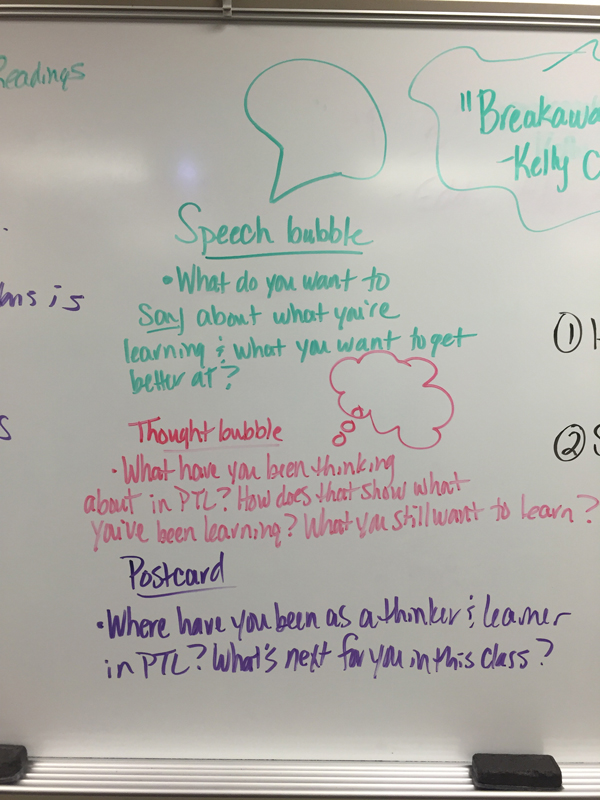 Readings
"Breakawa
-Kelly C
Speech bubble
•What do you want to
say about what you're
learning & what you want to get
better at?
Thought bubble
•What have you been thinking
about in PTL? How does that show what
you've been learning? What you still want to learn?
Postcard
•Where have you been as a thinker & learner
in PTL? What's next for you in this class?
is
s
① H
② S